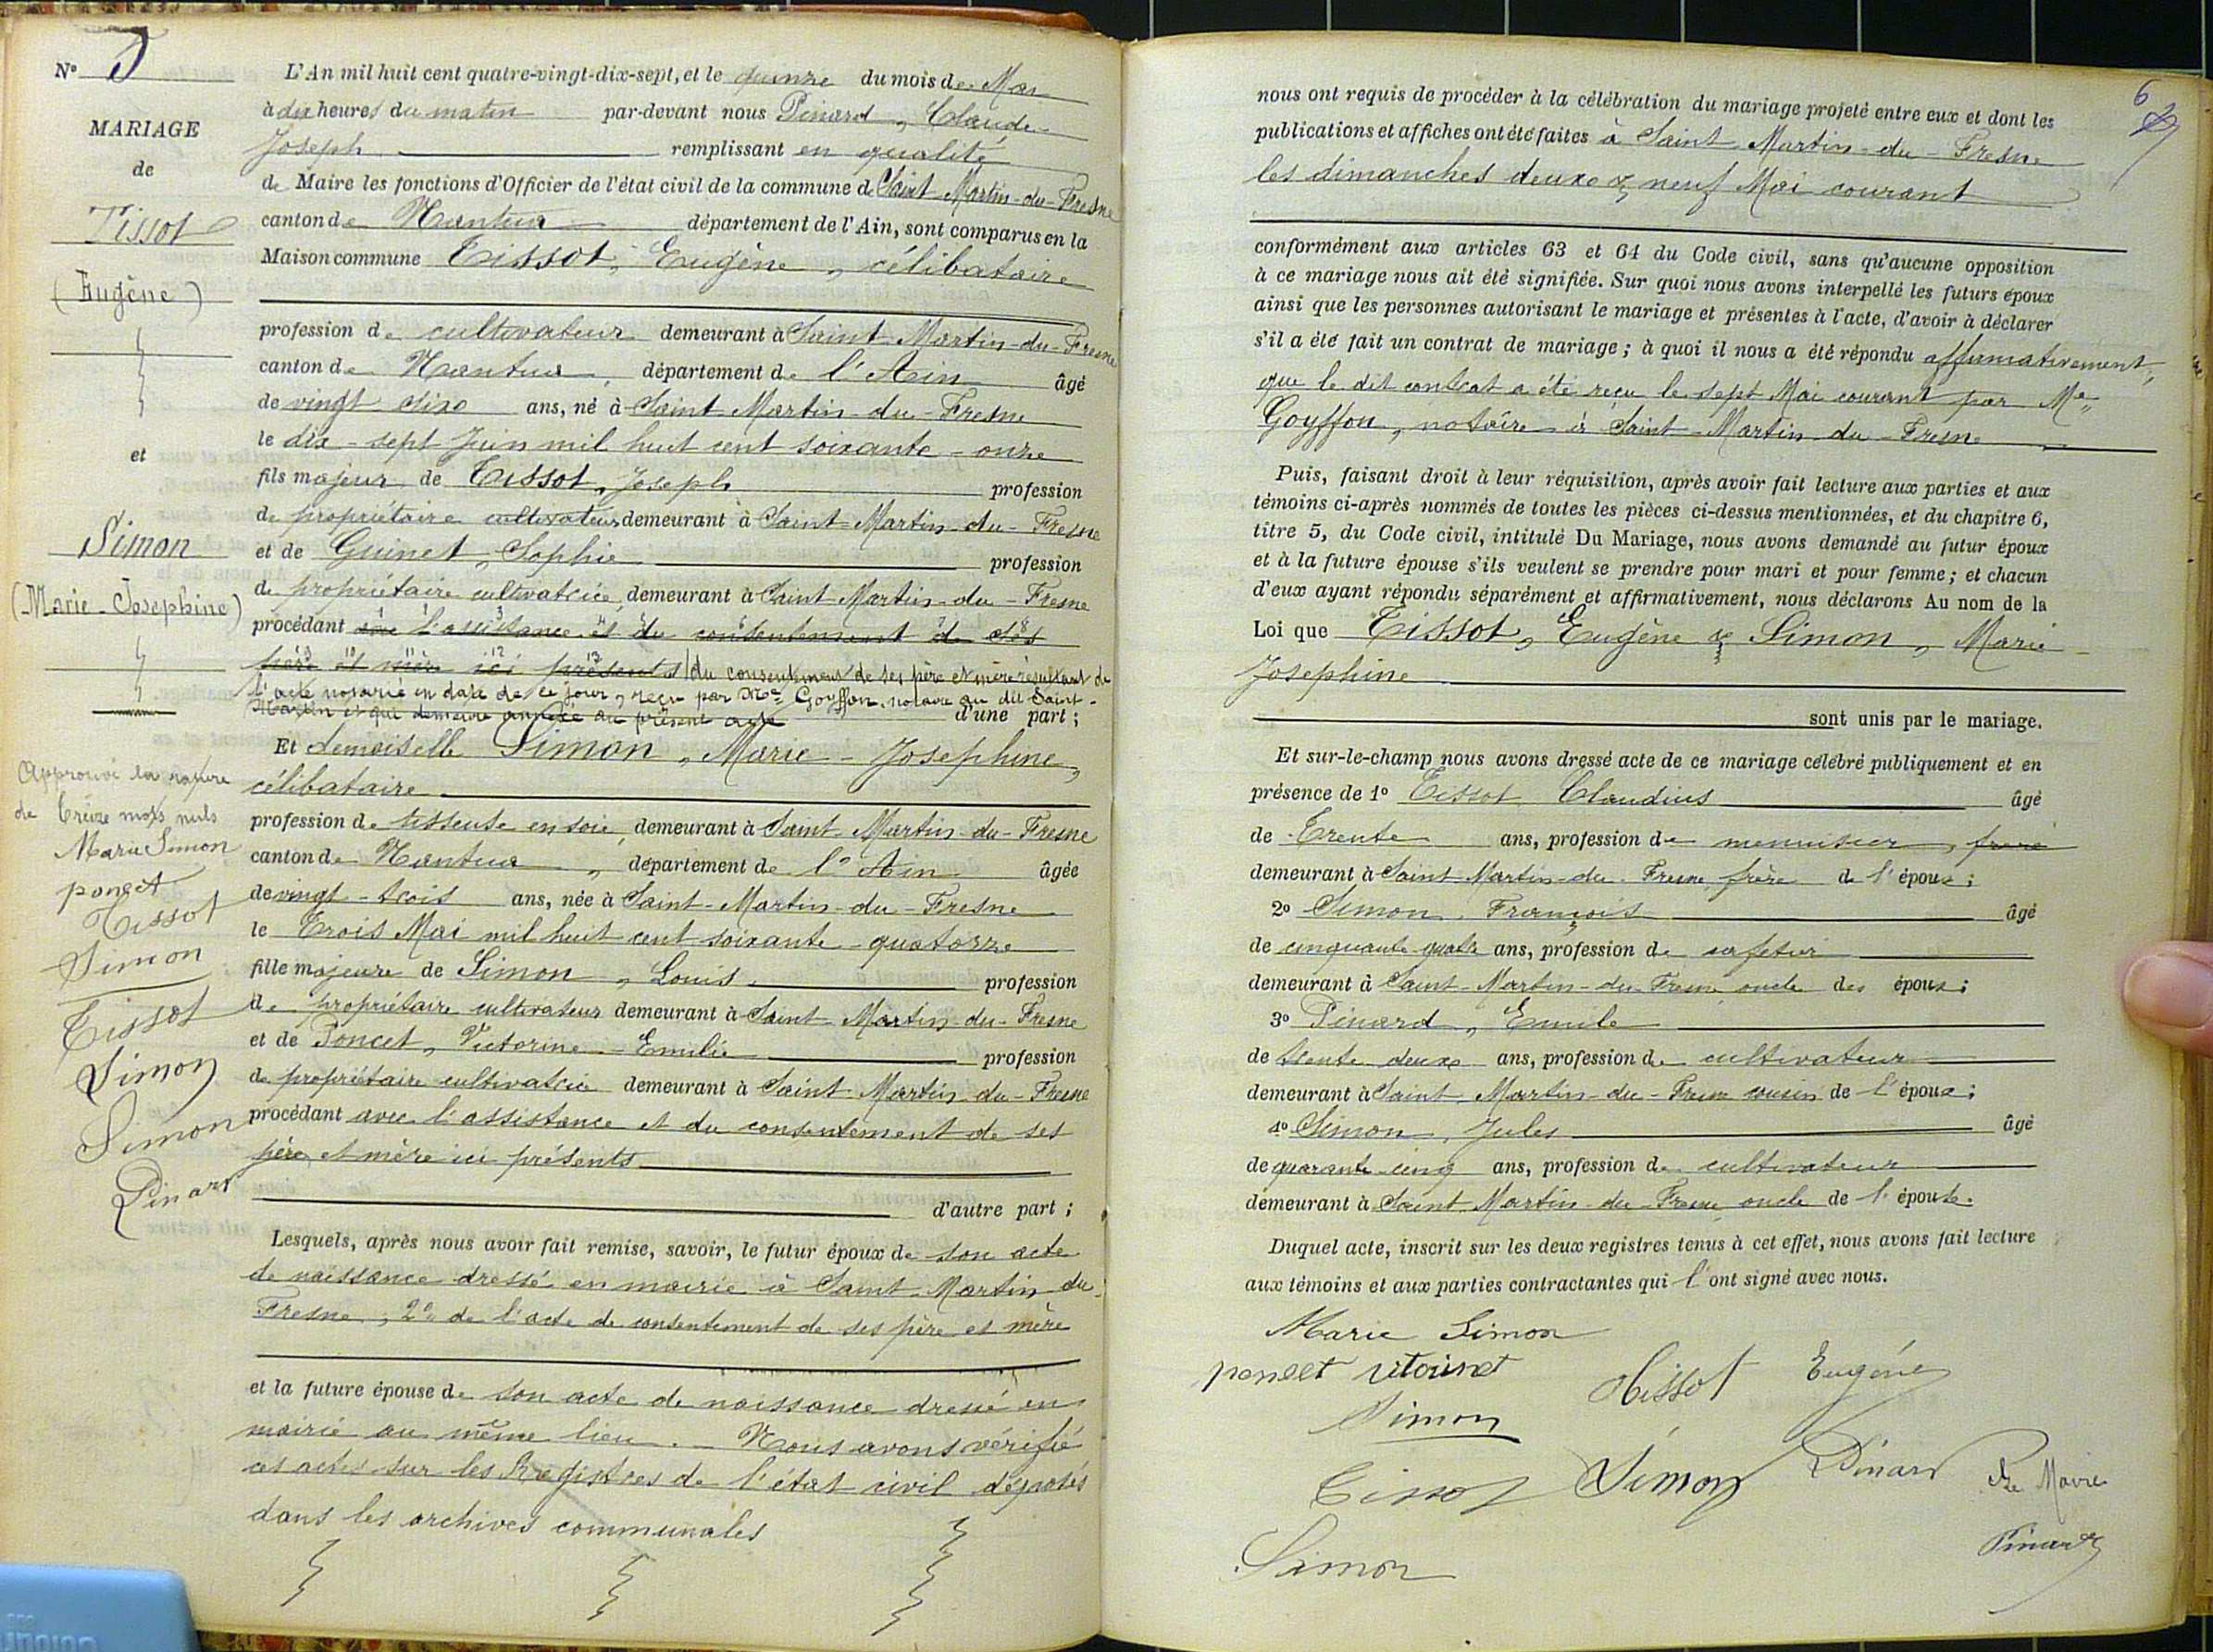 N° 5
MARIAGE
de
Tissot
(Eugène)
et
Simon
(Marie-Josephine)
Approuvé la rature
de treize mots nuls
Marie Simon
poncet
Tissot
Simon
Tissot
Simon
Simon
Pinard
L'An mil huit cent quatre-vingt-dix-sept, et le quinze du mois de Mai
à dix heures du matin par-devant nous Pinard, Claude
Joseph remplissant en qualité
de Maire les fonctions d'Officier de l'état civil de la commune de Saint-Martin-du-Fresne
canton de Nantua département de l'Ain, sont comparus en la
Maison commune Tissot, Eugène, célibataire
profession de cultivateur demeurant à Saint-Martin-du-Fresne
canton de Nantua, département de l'Ain âgé
de vingt cinq ans, né à Saint Martin-du-Fresne
le dix-sept Juin mil huit cent soixante-onze
fils majeur de Tissot, Joseph profession
de propriétaire cultivateur demeurant à Saint-Martin-du-Fresne
et de Guinet, Sophie profession
de propriétaire cultivatrice, demeurant à Saint Martin-du-Fresne
procédant avec l'assistance et du consentement de ses
père et mère ici présents du consentement de ses père et mère résultant de
l'acte notarié en date de ce jour, reçu par Me Goyffon, notaire au dit Saint-
Martin et qui demeure annexé au présent acte d'une part;
Et demoiselle Simon, Marie-Josephine,
célibataire
profession de tisseuse en soie, demeurant à Saint Martin-du-Fresne
canton de Nantua, département de l'Ain âgée
de vingt-trois ans, née à Saint-Martin-du-Fresne
le Trois Mai mil huit cent soixante-quatorze
fille majeure de Simon, Louis profession
de propriétaire cultivateur demeurant à Saint Martin-du-Fresne
et de Poncet, Victorine-Emilie profession
de propriétaire cultivatrice demeurant à Saint-Martin-du-Fresne
procédant avec l'assistance et du consentement de ses
père et mère ici présents
d'autre part;
Lesquels, après nous avoir fait remise, savoir, le futur époux de son acte
de naissance dressé en mairie à Saint-Martin du
Fresne; 2° de l'acte de consentement de ses père et mère
et la future épouse de son acte de naissance dressé en
mairie au même lieu. - Nous avons vérifié
ces actes sur les Registres de l'état civil déposés
dans les archives communales
6
nous ont requis de procéder à la célébration du mariage projeté entre eux et dont les
publications et affiches ont été faites à Saint Martin-du-Fresne
les dimanches deux & neuf Mai courant
conformément aux articles 63 et 64 du Code civil, sans qu'aucune opposition
à ce mariage nous ait été signifiée. Sur quoi nous avons interpellé les futurs époux
ainsi que les personnes autorisant le mariage et présentes à l'acte, d'avoir à déclarer
s'il a été fait un contrat de mariage; à quoi il nous a été répondu affirmativement,
que le dit contrat a été reçu le sept Mai courant par Me
Goyffon, notaire à Saint-Martin-du-Fresne
Puis, faisant droit à leur réquisition, après avoir fait lecture aux parties et aux
témoins ci-après nommés de toutes les pièces ci-dessus mentionnées, et du chapitre 6,
titre 5, du Code civil, intitulé Du Mariage, nous avons demandé au futur époux
et à la future épouse s'ils veulent se prendre pour mari et pour femme; et chacun
d'eux ayant répondu séparément et affirmativement, nous déclarons Au nom de la
Loi que Tissot, Eugène & Simon, Marie
Josephine
sont unis par le mariage.
Et sur-le-champ nous avons dressé acte de ce mariage célébré publiquement et en
présence de 1° Tissot Claudius âgé
de Trente ans, profession de menuisier, frère
demeurant à Saint-Martin-du-Fresne frère de l'époux;
2° Simon, François âgé
de cinquante-quatre ans, profession de cafetier
demeurant à Saint-Martin-du-Fresne oncle des époux;
3° Pinard, Emile
de trente deux ans, profession de cultivateur
demeurant à Saint-Martin-du-Fresne cousin de l'époux;
4° Simon, Jules âgé
de quarante-cinq ans, profession de cultivateur
demeurant à Saint Martin-du-Fresne oncle de l'épouse.
Duquel acte, inscrit sur les deux registres tenus à cet effet, nous avons fait lecture
aux témoins et aux parties contractantes qui l'ont signé avec nous.
Marie Simon
poncet Tissot Eugène
Simon
Tissot Simon Pinard Le Maire
Simon Pinard